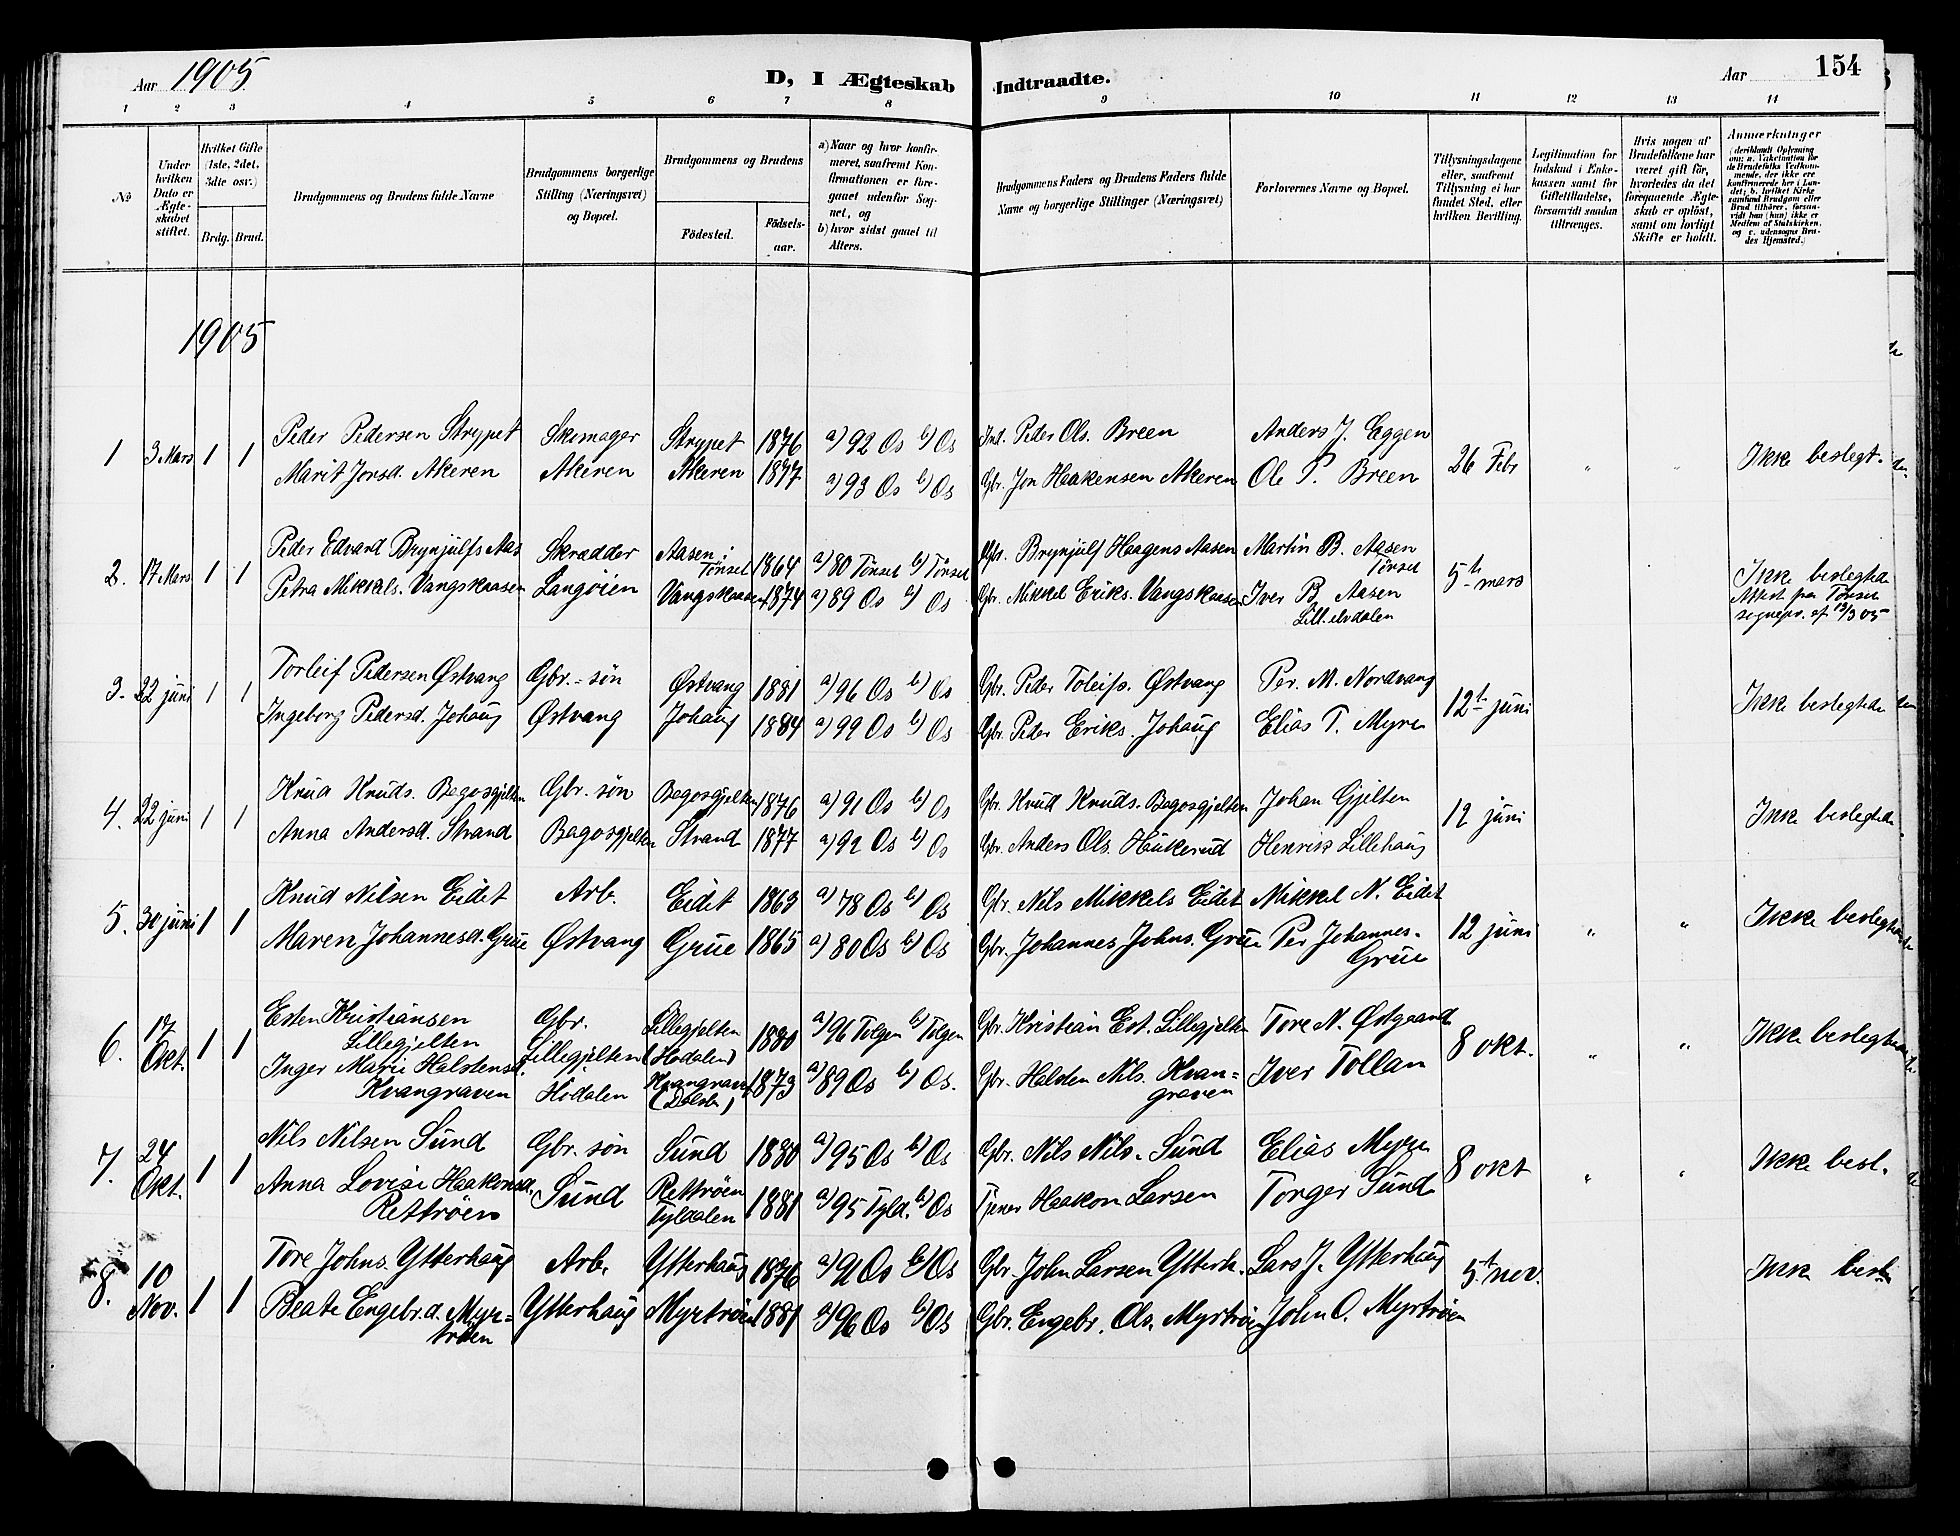 Aar 1905
D, I Ægteskab Indtraadte.
Aar 154
1 2 3 4 5 6 7 8 9 10 11 12 13 14
№
Under hvilken Dato er Ægteskabet stiftet.
Hvilket Gifte (1ste, 2det, 3die osv.)
Brdg. Brud.
Brudgommens og Brudens fulde Navne
Brudgommens borgerlige Stilling (Næringsvei) og Bopæl.
Brudgommens og Brudens
Fødested.
Fødselsaar.
a) Naar og hvor konfirmeret, saafremt Konfirmationen er foregaaet udenfor Sognet, og
b) hvor sidst gaaet til Alters.
Brudgommens Faders og Brudens Faders fulde Navne og borgerlige Stillinger (Næringsvei)
Forlovernes Navne og Bopæl.
Tillysningsdagene eller, saafremt Tillysning ei har fundet Sted, efter hvilken Bevilling.
Legitimation for Indskud i Enkekassen samt for Giftetilladelse, forsaavidt saadan tiltrænges.
Hvis nogen af Brudefolkene har været gift før, hvorledes da det foregaaende Ægteskab er opløst, samt om lovligt Skifte er holdt.
Anmærkninger (deriblandt Oplysning om: a. Vakcination for de Brudefolks Vedkommende, der ikke ere konfirmerede her i Landet; b. hvilket Kirkesamfund Brudgom eller Brud tilhører, forsaavidt han (hun) ikke er Medlem af Statskirken, og c. udensogns Brudes Hjemsted.)
1905
1 3 Mars 1 1 Peder Pedersen Strypet Skomager Strypet 1876 a) 92 Os b) Os Ind. Peder Ols. Breen Anders J. Eggen 26 Febr " " Ikke beslegt.
Marit Jonsd. Akeren Akeren Akeren 1877 a) 93 Os b) Os Gbr. Jon Haakensen Akeren Ole P. Breen
2. 17 Mars 1 1 Peder Edvard Brynjulfs Aas Skrædder Aasen i Tønset 1864 a) 80 Tønset b) Tønset Gbr. Brynjulf Haagens Aasen Martin B. Aasen Tønset 5te mars Ikke beslegtede
Petra Mikkels. Vangskaasen Langøien Vangskaasen 1874 a) 89 Os b) Os Gbr. Mikkel Eriks. Vangskaasen Iver B Aasen Lill. elvdalen Attest fra Tønset sognepr. af 13/3 05
3. 22 juni 1 1 Torleif Pedersen Østvang Gbr.-søn Østvang 1881 a) 96 Os b) Os Gbr. Peder Toleifs. Østvang Per. M. Nordvang 12te juni Ikke beslegtede
Ingeborg Pedersd. Johaug Østvang Johaug 1884 a) 99 Os b) Os Gbr. Peder Eriks. Johaug Elias T. Myren
4. 22 juni 1 1 Knud Knuds. Bagosgjelten Gbr. søn Bagosgjelten 1876 a) 91 Os b) Os Gbr. Knud Knuds. Bagosgjelten Johan Gjelten 12 juni Ikke beslegtede
Anna Andersd. Strand Bagosgjelten Strand 1877 a) 92 Os b) Os Gbr. Anders Ols. Haukerud Henrik Lillehaug
5. 30 juni 1 1 Knud Nilsen Eidet Arb. Eidet 1863 a) 78 Os b) Os Gbr. Nils Mikkels Eidet Mikkel N. Eidet 12 juni " " Ikke beslegtede
Maren Johannesd. Grue Østvang Grue 1865 a) 80 Os b) Os Gbr. Johannes Johns. Grue Per Johannes. Grue
6. 17 Okt. 1 1 Esten Kristiansen Lillegjelten Gbr. Lillegjelten (Hodalen) 1880 a) 96 Tolgen b) Tolgen Gbr. Kristian Est. Lillegjelten Tore N. Østgaard 8 okt. " " Ikke beslegtede
Inger Marie Halstensd. Kvangraven Lillegjelten Hodalen Kvangraven (Dalsb.) 1873 a) 89 Os b) Os. Gbr. Halsten Nils. Kvangraven Iver Tollan
7. 24 Okt. 1 1 Nils Nilsen Sund Gbr. søn Sund 1880 a) 95 Os b) Os Gbr. Nils Nils. Sund Elias Myren 8 okt " " Ikke besl.
Anna Lovise Haakonsd. Rettrøen Sund Rettrøen Tyldalen 1881 a) 95 Tyld. b) Os Tjener Haakon Larsen Torger Sund
8. 10 Nov. 1 1 Tore Johns. Ytterhaug Arb. Ytterhaug 1876 a) 91 Os b) Os Gbr. John Larsen Ytterh. Lars J. Ytterhaug 5te nov. Ikke besl.
Beate Engebr.d. Myrtrøen Ytterhaug Myrtrøen 1881 a) 96 Os b) Os Gbr. Engebr. Ols. Myrtrøen John O. Myrtrøen